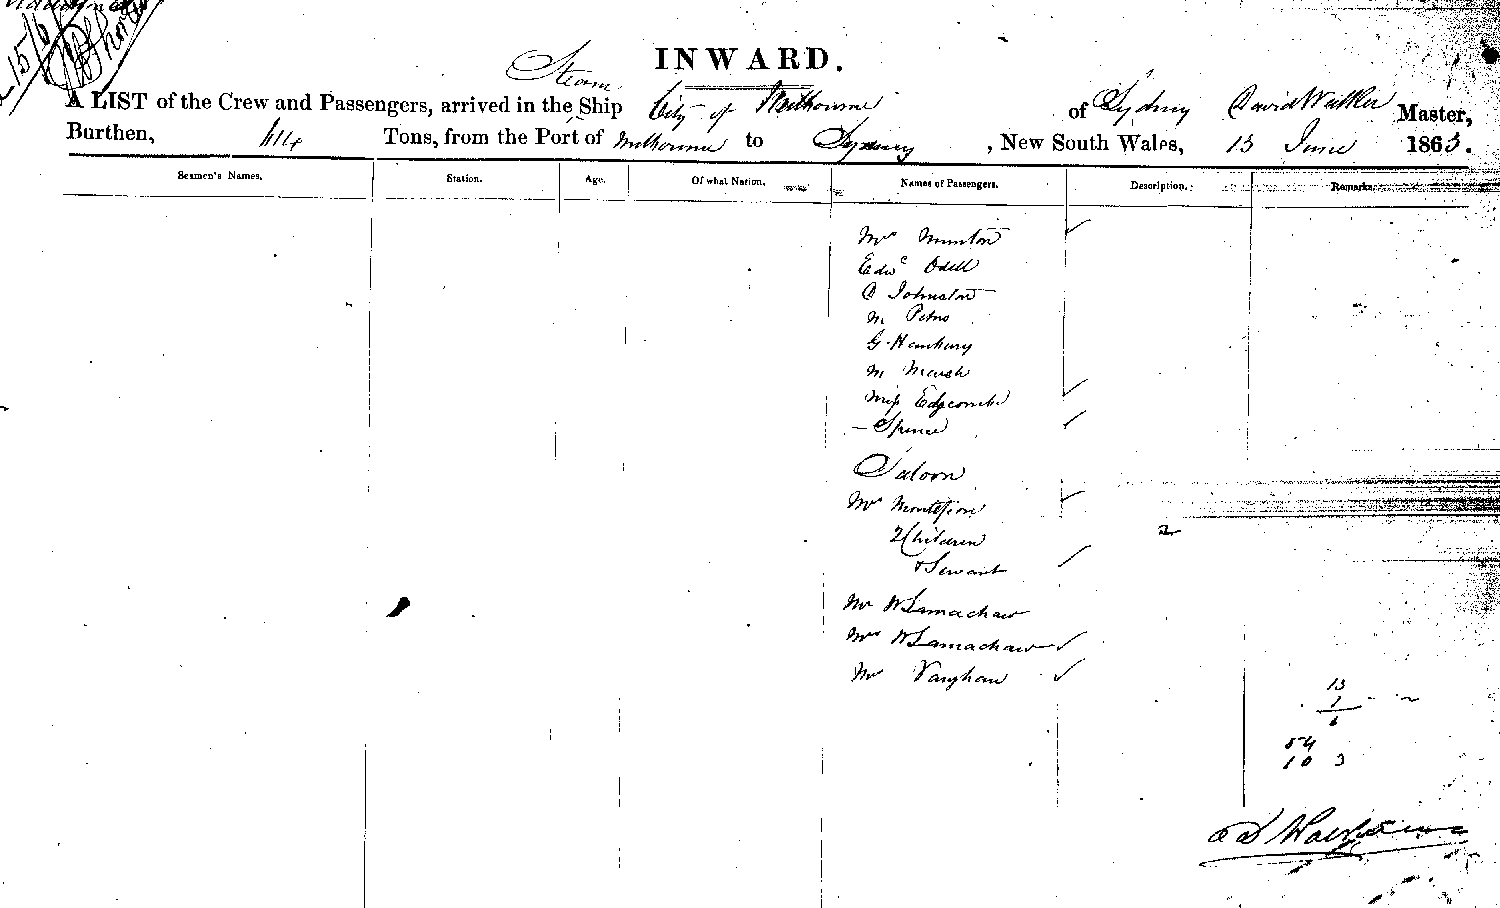 INWARD.
Steam
A LIST of the Crew and Passengers, arrived in the Ship City of Melbourne of Sydney David Walker Master,
Burthen, 614 Tons, from the Port of Melbourne to Sydney, New South Wales, 13 June 1863.
Seamen's Names. Station. Age. Of what Nation. Names of Passengers. Description. Remarks.
Mrs
Edwd Odell
D Johnston
M
G. Hanbury
M Marsh
Miss Edgcombe
— Spence
Saloon
Mrs Montefiore
2 Children
& Servant
Mr W
Mrs W
Mr Vaughan
13
54
10 3